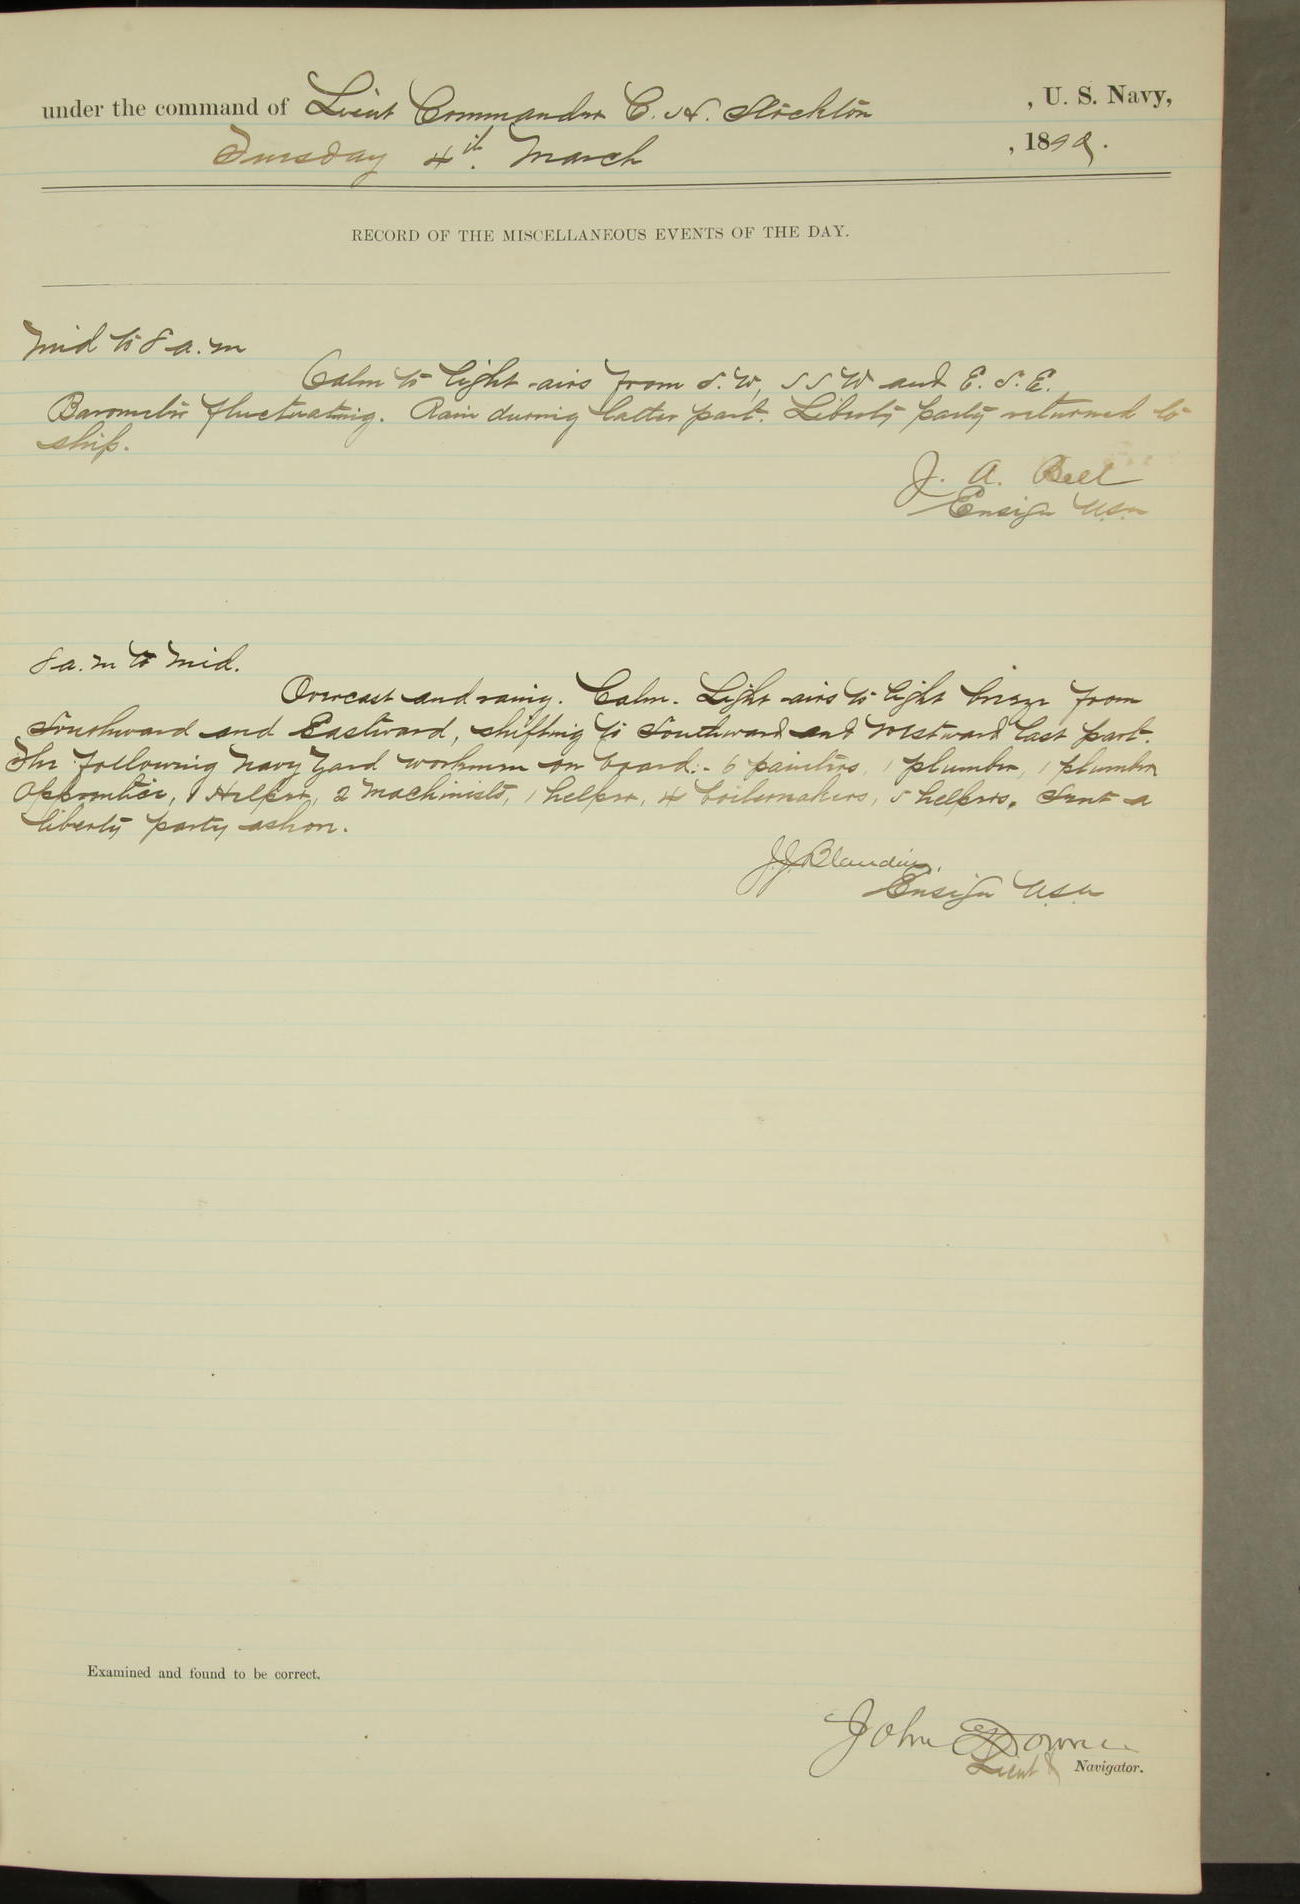 under the command of Lieut Commander C. H. Stockton , U. S. Navy,
Tuesday 4th. March , 1890.
RECORD OF THE MISCELLANEOUS EVENTS OF THE DAY.
Mid to 8 a.m
Calm to light airs from S.W, SSW and E.S.E.
Barometer fluctuating. Rain during latter part. Liberty party returned to
ship.
J. A. Bell
Ensign U.S.N.
8 a.m to Mid.
Overcast and rainy. Calm. Light airs to light breeze from
Southward and Eastward, shifting to Southward and Westward last part.
The following Navy Yard workmen on board:- 6 painters, 1 plumber, 1 plumber
Apprentice, 1 Helper, 2 Machinists, 1 helper, 4 boilermakers, 5 helpers. Sent a
liberty party ashore.
J.J. Blandin.
Ensign U.S.N.
Examined and found to be correct.
John Downes
Lieut & Navigator.